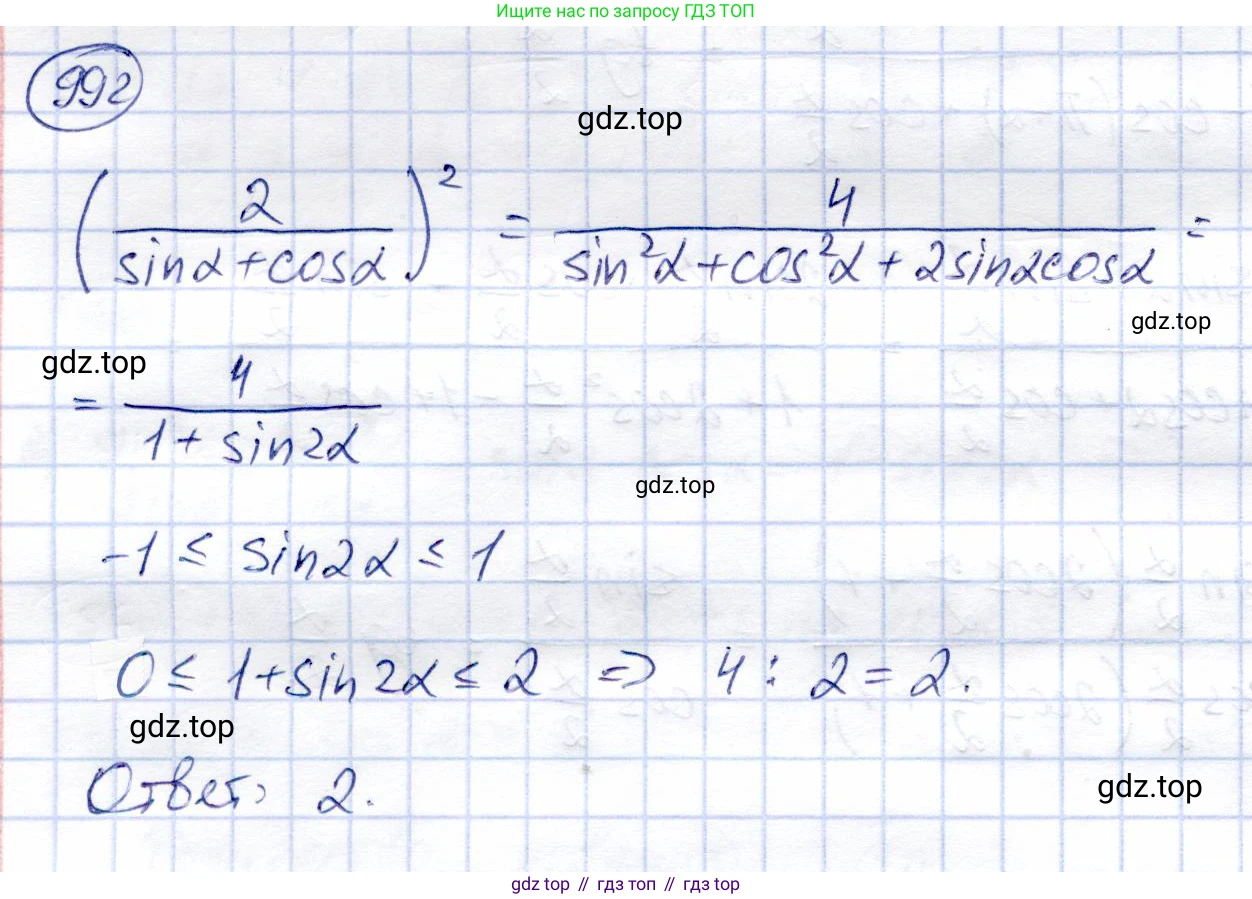 Ищите нас по запросу ГДЗ ТОП
992
gdz.top
(2/(sinα+cosα))² = 4/(sin²α+cos²α+2sinαcosα) =
gdz.top
gdz.top
= 4/(1+sin2α)
gdz.top
-1 ≤ sin2α ≤ 1
0 ≤ 1+sin2α ≤ 2 ⇒ 4 : 2 = 2.
gdz.top
gdz.top
Ответ: 2.
gdz top // гдз топ // gdz top